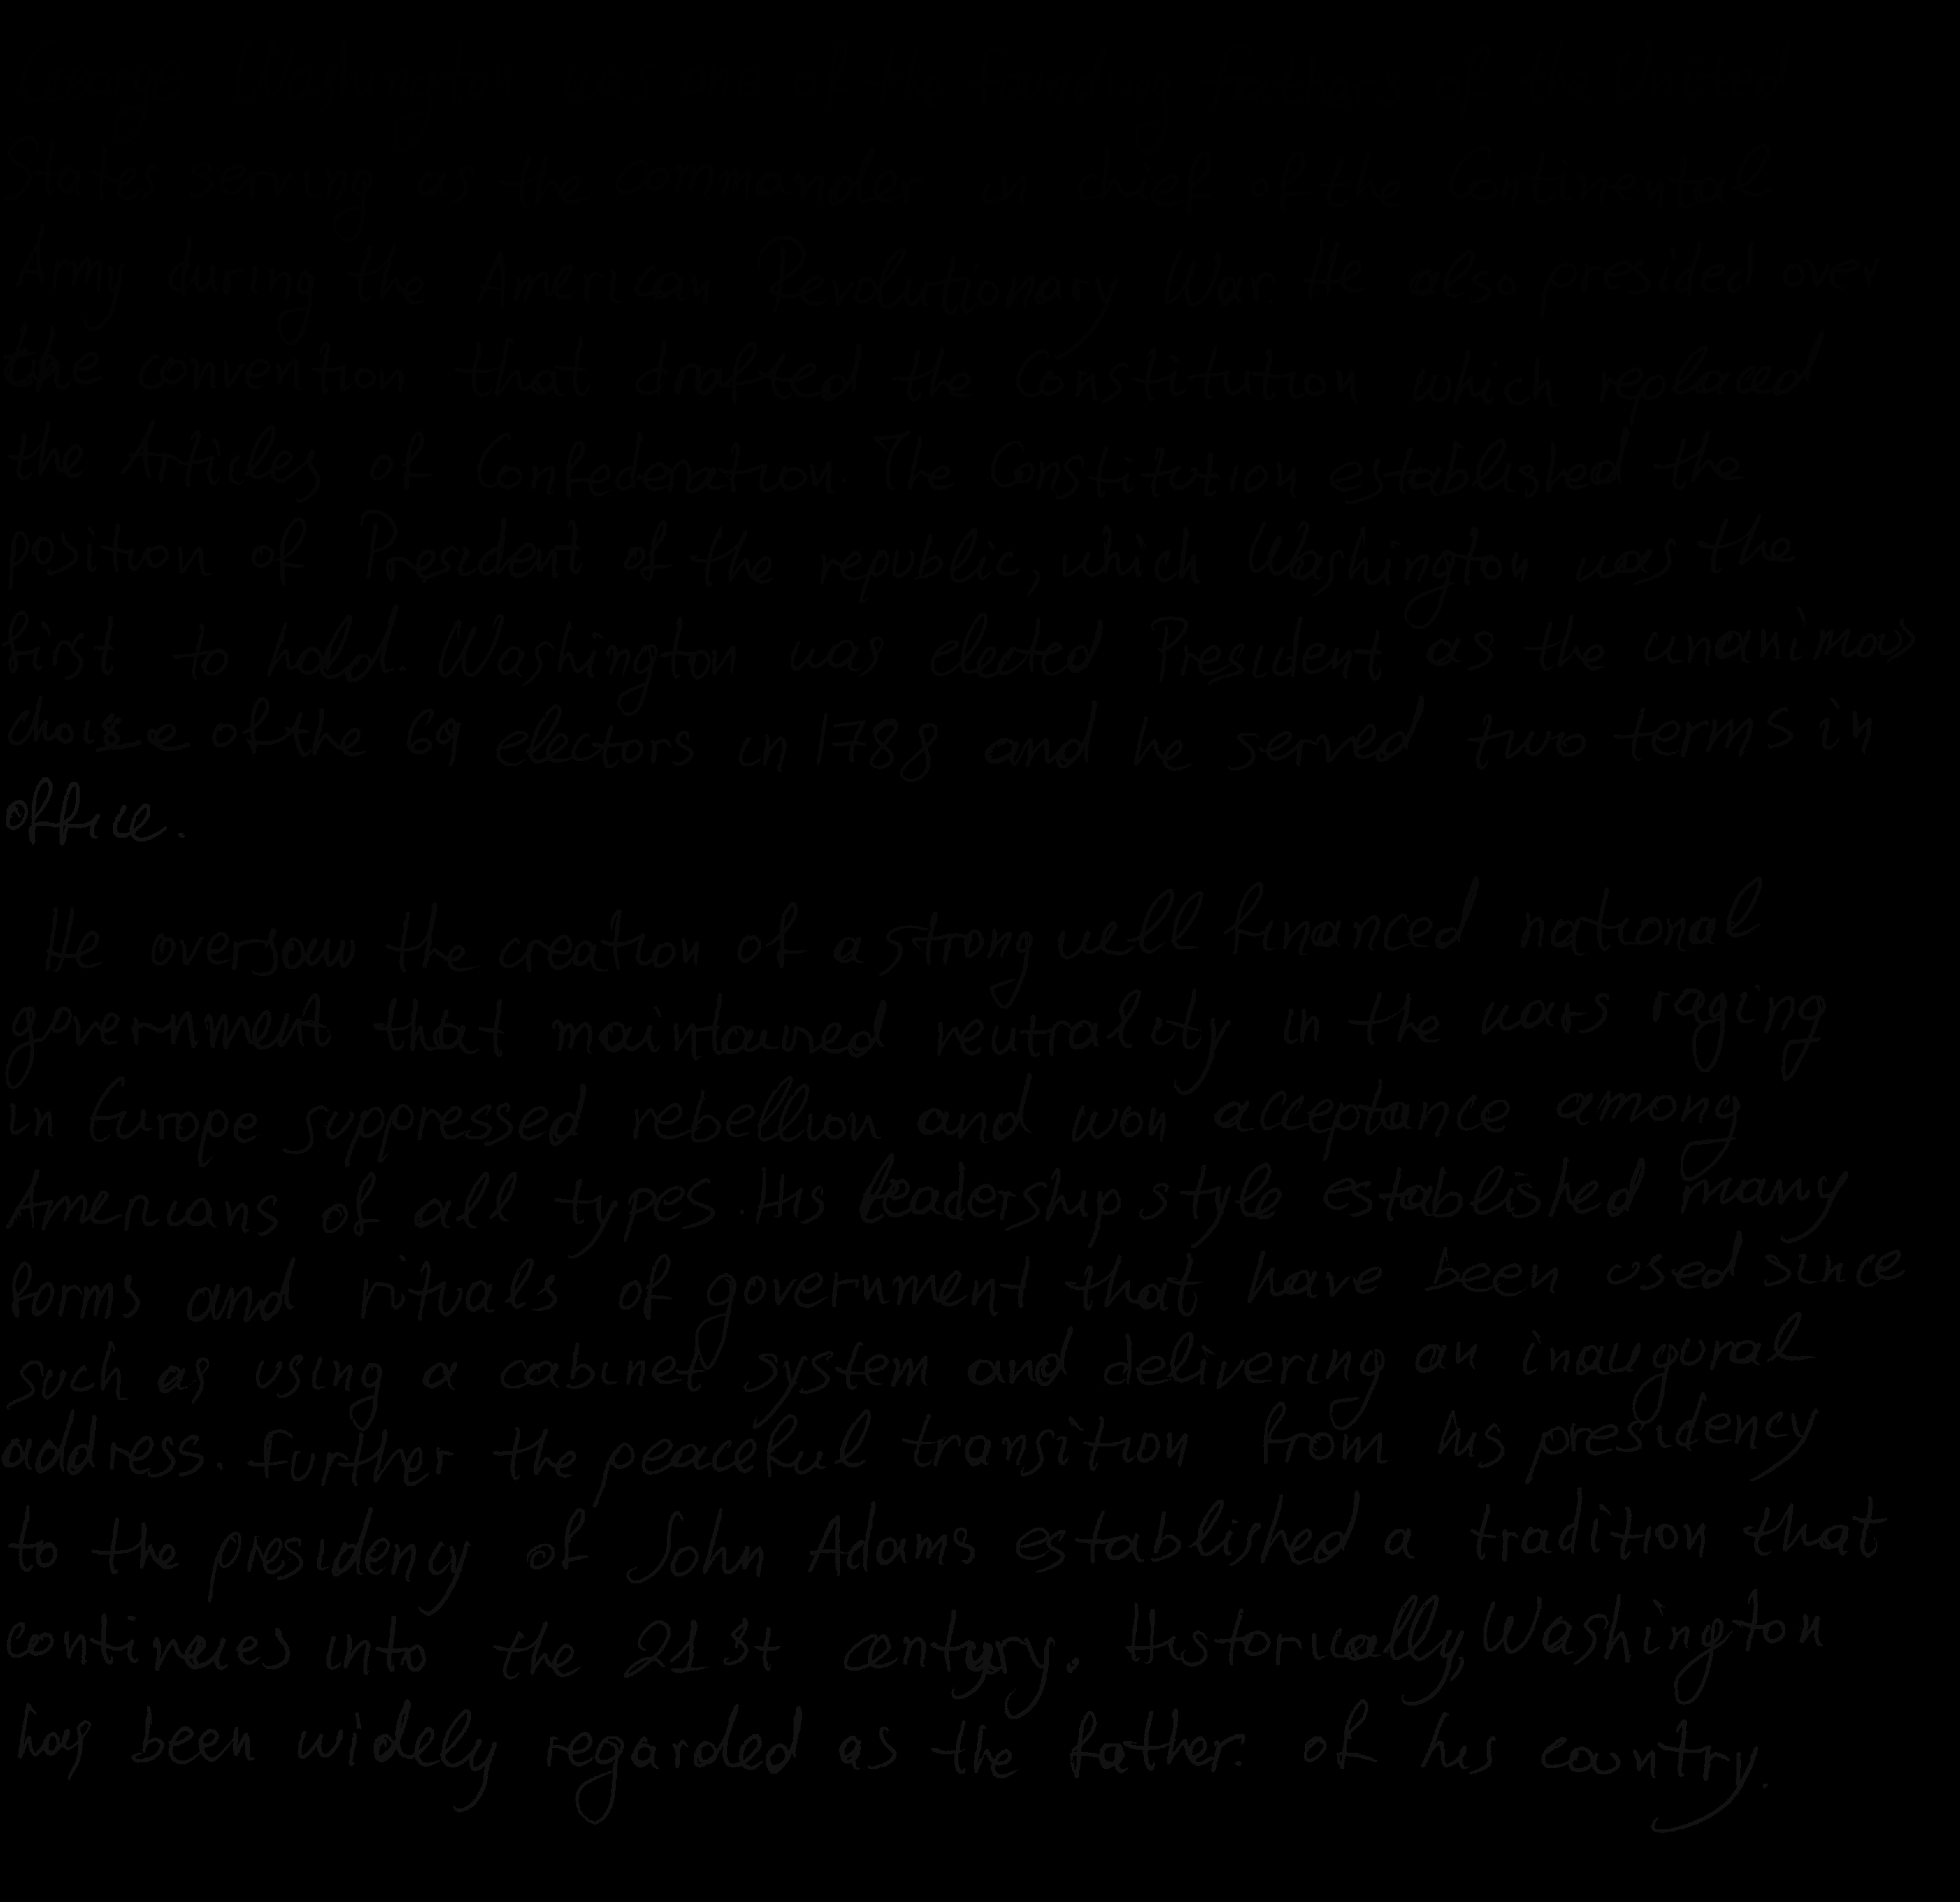 George Washington was one of the Founding Fathers of the United
States serving as the commander in chief of the Continental
Army during the American Revolutionary War. He also presided over
the convention that drafted the Constitution which replaced
the Articles of Confederation. The Constitution established the
position of President of the republic, which Washington was the
first to hold. Washington was elected President as the unanimous
choise of the 69 electors in 1788 and he served two terms in
office.
He oversaw the creation of a strong well financed national
government that maintained neutrality in the wars raging
in Europe suppressed rebellion and won acceptance among
Americans of all types. His leadership style established many
forms and rituals of government that have been used since
such as using a cabinet system and delivering an inaugural
address. Further the peaceful transition from his presidency
to the presidency of John Adams established a tradition that
continues into the 21st century. Historically, Washington
has been widely regarded as the father. of his country.